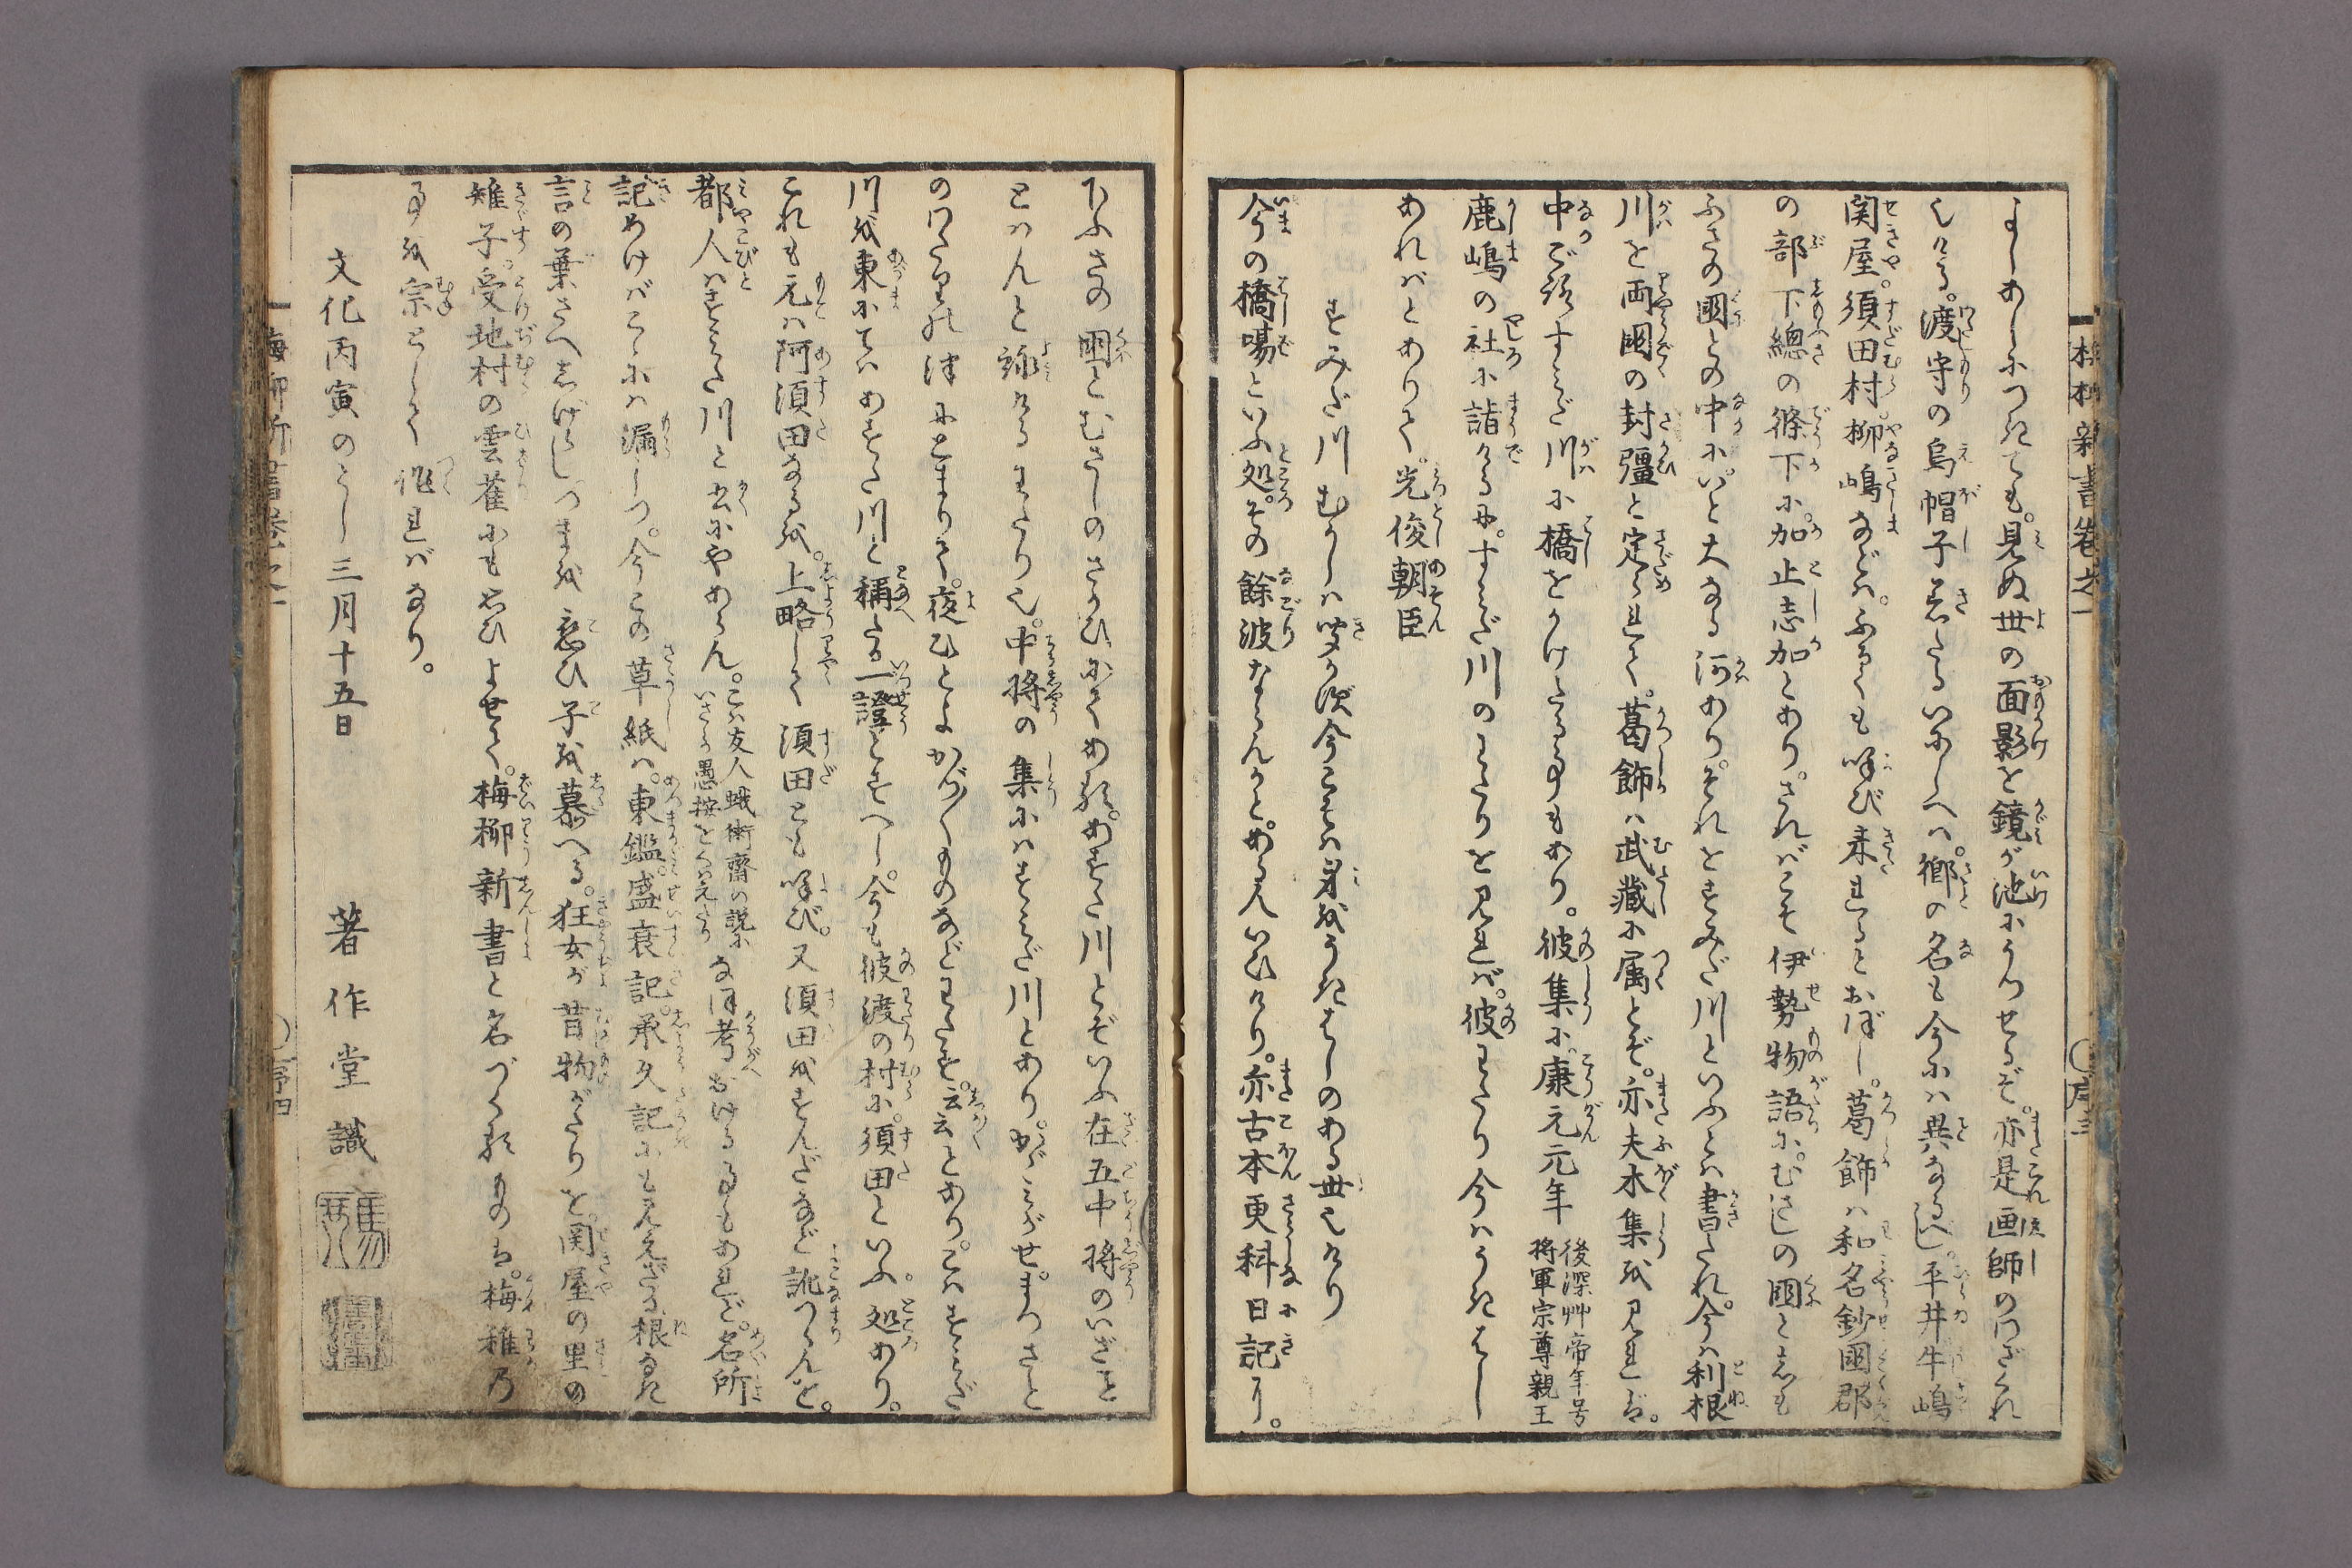 よしあしにつきても。見ぬ世の面影を鏡が池にうつせるぞ。亦是画師のわざくれ
也ける。渡守の烏帽子着たるいにしへは。郷の名も今には異なるべし。平井牛嶋
関屋。須田村。柳嶋などは。ふるくも呼び来れるとおぼし。葛飾は和名鈔國郡
の部下總の條下に。加止志加とあり。さればこそ伊勢物語に。むさしの國としも
ふさの國との中に。いと大なる河あり。それをすみだ川といふとは書たれ。今は利根
川を両國の封彊と定られて。葛飾は武藏に属とぞ。亦夫木集を見れば。
中ごろすみだ川に橋をかけたる事もあり。彼集に。康元元年
後深艸帝年号
将軍宗尊親王
鹿嶋の社に詣けるに。すみだ川のわたりを見れば。彼わたり今はうきはし
あればとありて。光俊朝臣
すみだ川むかしは聞かず今こそは身をうきはしのある世也けり
今の橋場といふ処。その餘波ならんかと。ある人いひけり。亦古本更科日記に。
下ふさの國とむさしのさかひにてあなる。あすた川とぞいふ在五中将のいざこと
とはんと詠けるわたり也。中将の集にはすみだ川とあり。かゞみがせ。まつさと
のわたりの津にとまりて。夜ひとよかつ〴〵ものなどわたす。云云とあり。こはすみだ
川を東にてはあすた川と稱たる一證とすべし。今も彼渡の村に。須田といふ処あり。
これも元は阿須田なるを。上略して須田とも呼び。又須田をすんだなど訛つらんを。
都人はすみだ川と書にやあらん。
こは友人蛾術齋の説に
いさゝか愚按をくはえたり
なほ考おける事もあれど。名所
記めけばこゝには漏しつ。今この草紙は。東鑑。盛衰記。承久記にも見えざる根なき
言の葉さへしげらしつまを恋ひ子を慕へる。狂女が昔物がたりを。関屋の里の
雉子。受地村の雲雀にも思ひよせて。梅柳新書と名づくるものは。梅稚乃
事を宗として作ればなり。
文化丙寅のとし三月十五日
著作堂識
馬琴
梅柳新書卷之一
序三
梅柳新書卷之一
序四